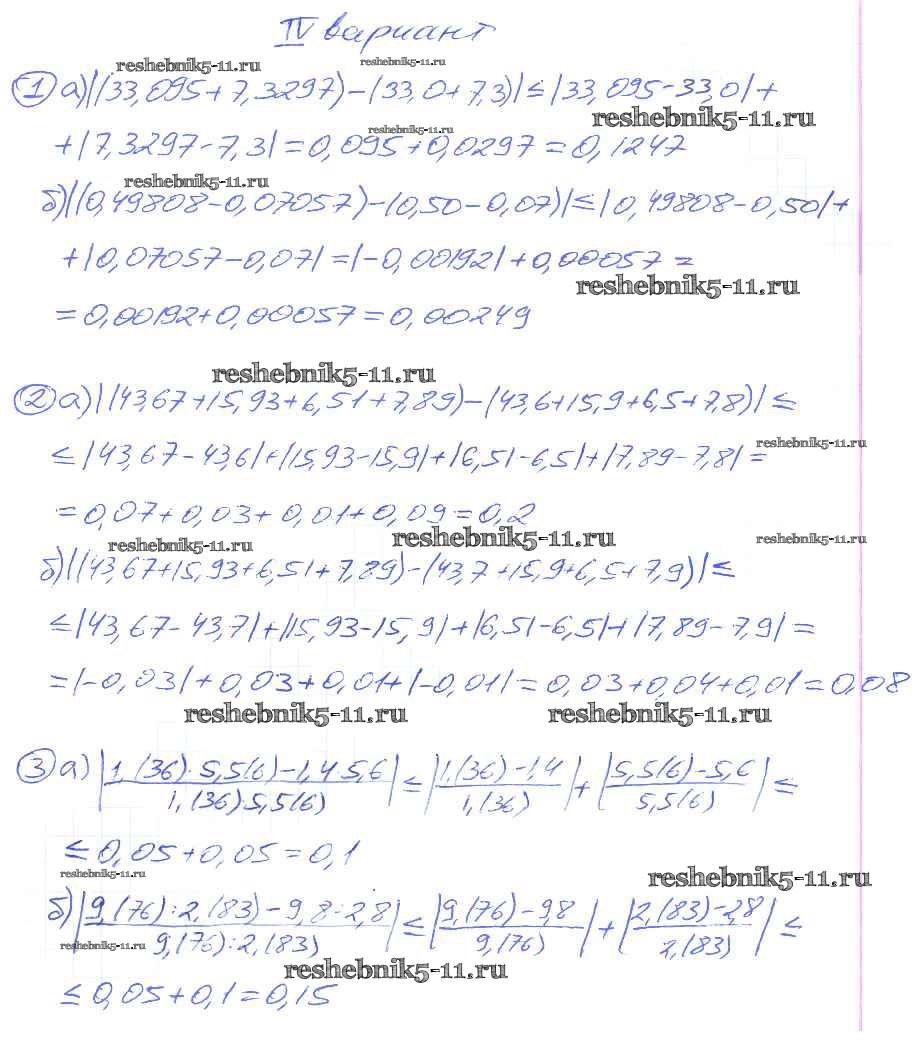 IV вариант
reshebnik5-11.ru reshebnik5-11.ru
1 а) |(33,095+7,3297)-(33,0+7,3)| ≤ |33,095-33,0| +
reshebnik5-11.ru reshebnik5-11.ru
+ |7,3297-7,3| = 0,095+0,0297 = 0,1247
reshebnik5-11.ru
б) |(0,49808-0,07057)-(0,50-0,07)| ≤ |0,49808-0,50| +
+ |0,07057-0,07| = |-0,00192| + 0,00057 =
reshebnik5-11.ru
= 0,00192+0,00057 = 0,00249
reshebnik5-11.ru
2 а) |(43,67+15,93+6,51+7,89)-(43,6+15,9+6,5+7,8)| ≤
reshebnik5-11.ru
≤ |43,67-43,6|+|15,93-15,9|+|6,51-6,5|+|7,89-7,8| =
= 0,07+0,03+0,01+0,09 = 0,2
reshebnik5-11.ru reshebnik5-11.ru reshebnik5-11.ru
б) |(43,67+15,93+6,51+7,89)-(43,7+15,9+6,5+7,9)| ≤
≤ |43,67-43,7|+|15,93-15,9|+|6,51-6,5|+|7,89-7,9| =
= |-0,03|+0,03+0,01+|-0,01| = 0,03+0,04+0,01 = 0,08
reshebnik5-11.ru reshebnik5-11.ru
3 а) |(1,(36)·5,5(6)-1,4 5,6)/(1,(36) 5,5(6))| ≤ |(1,(36)-1,4)/(1,(36))| + |(5,5(6)-5,6)/(5,5(6))| ≤
≤ 0,05+0,05 = 0,1
reshebnik5-11.ru reshebnik5-11.ru
б) |(9,(76):2,(83)-9,8:2,8)/(9,(76):2,(83))| ≤ |(9,(76)-9,8)/(9,(76))| + |(2,(83)-2,8)/(2,(83))| ≤
reshebnik5-11.ru reshebnik5-11.ru
≤ 0,05+0,1 = 0,15